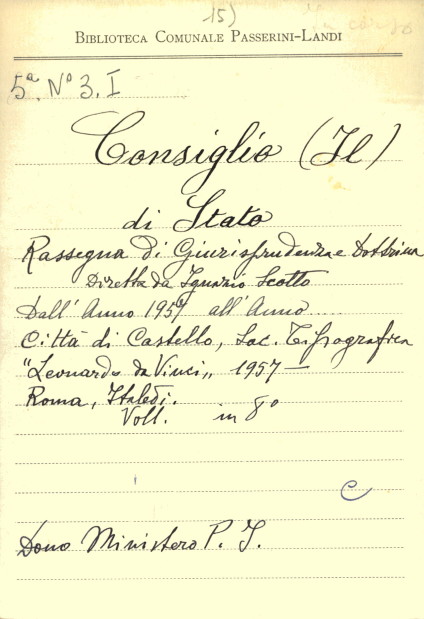 15)
In corso
BIBLIOTECA COMUNALE PASSERINI-LANDI
5ª. Nº 3. I
Consiglio (Il)
di Stato
Rassegna di Giurisprudenza e Dottrina
Diretta da Ignazio Scotto
Dall'Anno 1957 all'Anno
Città di Castello, Soc. Tipografica
"Leonardo da Vinci„ 1957 —
Roma, Italedi.
Voll. in 8º
C
Dono Ministero P. I.